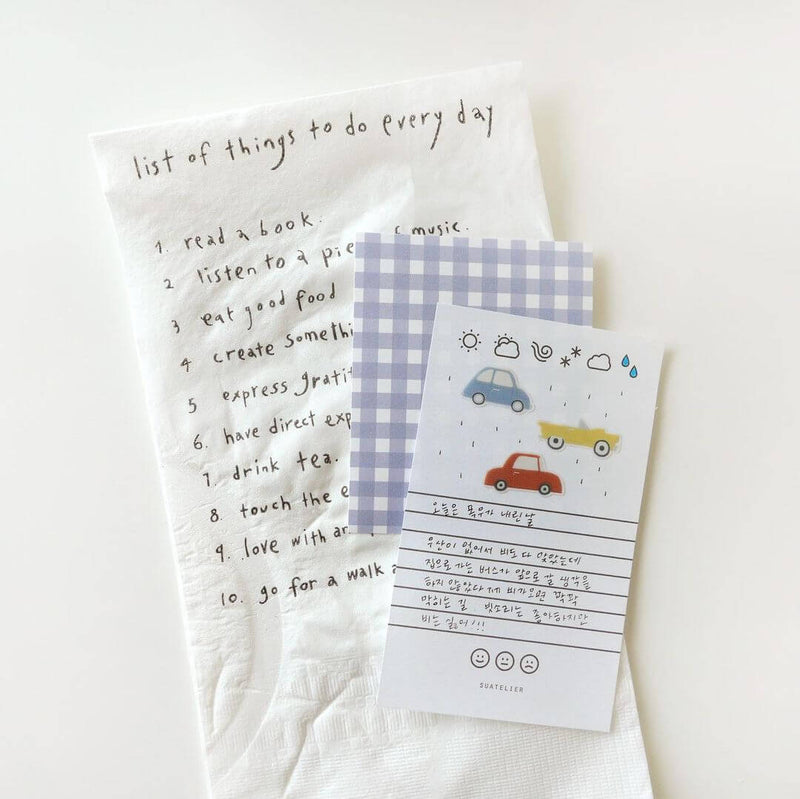 list of things to do every day
1. read a book.
2 listen to a pie music.
3 eat good food
4 create somethi
5 express gratit
6. have direct exp
7. drink tea.
8. touch the e
9. love with an
10. go for a walk a
오늘은 폭우가 내린날
우산이 없어서 비도 다 맞았는데
집으로 가는 버스가 앞으로 갈 생각을
하지 않았다 ㄲㄲ 비가오면 꽉꽉
막히는 길 빗소리는 좋아하지만
비는 싫어!!!
SUATELIER